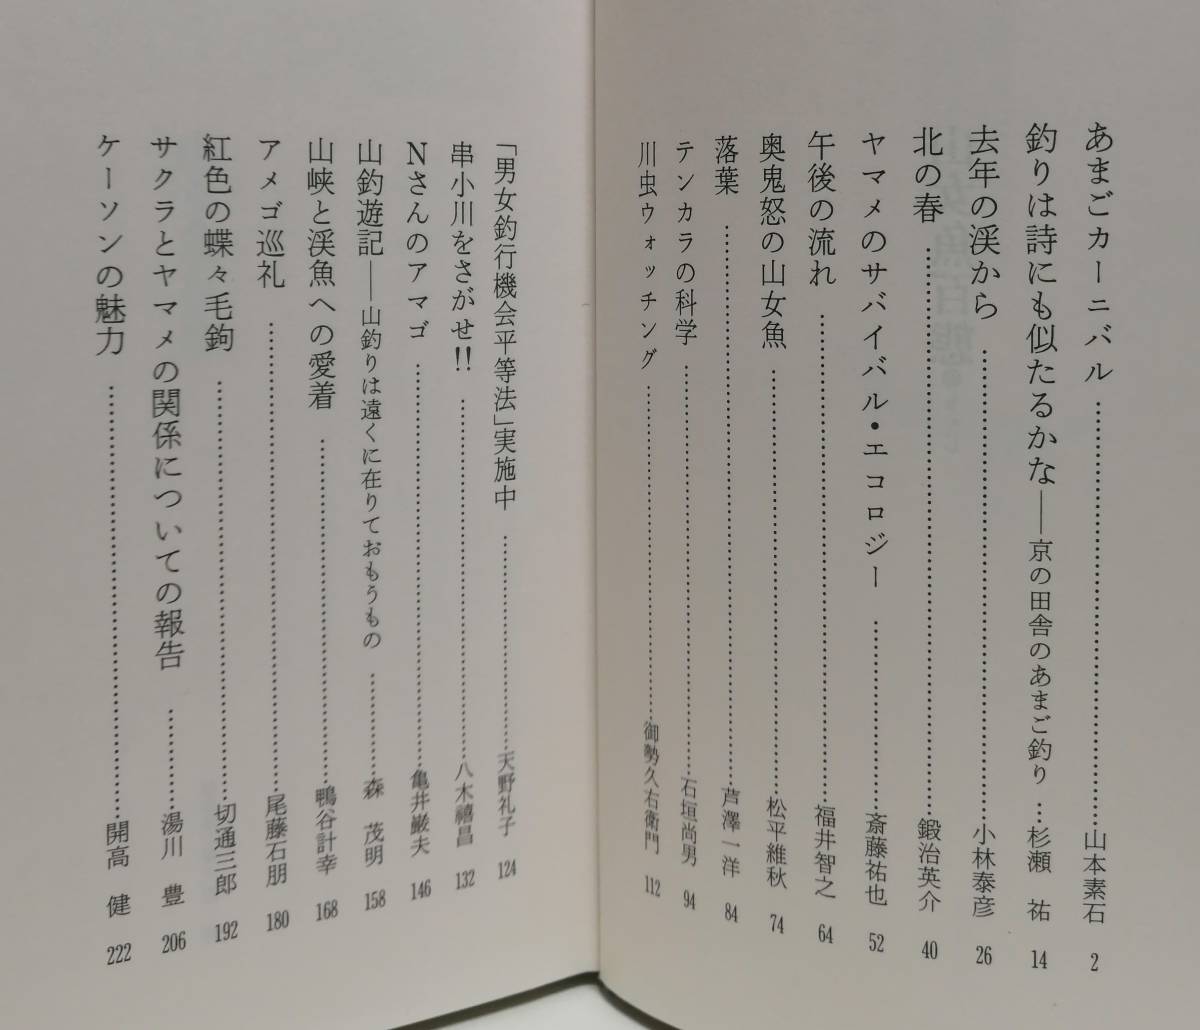 あまごカーニバル……山本素石 2
釣りは詩にも似たるかな──京の田舎のあまご釣り…杉瀬 祐 14
去年の渓から……小林泰彦 26
北の春……鍛治英介 40
ヤマメのサバイバル・エコロジー……斎藤祐也 52
午後の流れ……福井智之 64
奥鬼怒の山女魚……松平維秋 74
落葉……芦澤一洋 84
テンカラの科学……石垣尚男 94
川虫ウォッチング……御勢久右衛門 112
「男女釣行機会平等法」実施中……天野礼子 124
串小川をさがせ!!……八木禧昌 132
Nさんのアマゴ……亀井巌夫 146
山釣遊記──山釣りは遠くに在りておもうもの……森 茂明 158
山峡と渓魚への愛着……鴨谷計幸 168
アメゴ巡礼……尾藤石朋 180
紅色の蝶々毛鉤……切通三郎 192
サクラとヤマメの関係についての報告……湯川 豊 206
ケーソンの魅力……開高 健 222